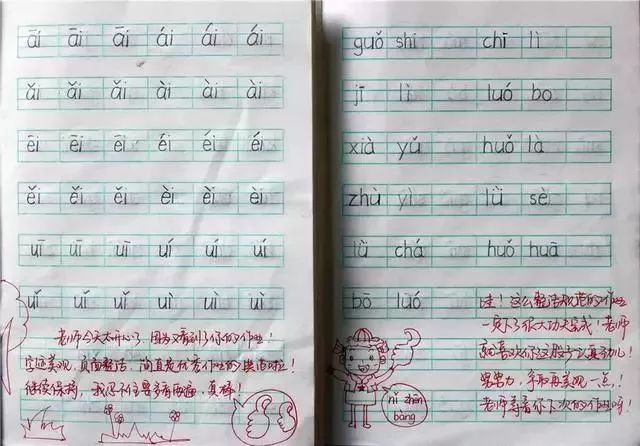 āi āi āi ái ái ái
ǎi ǎi ǎi ài ài ài
ēi ēi ēi éi éi éi
ěi ěi ěi èi èi èi
uī uī uī uí uí uí
uǐ uǐ uǐ uì uì uì
老师今天太开心了,因为又看到了你的作业!
字迹美观,页面整洁,简直是优秀作业的典范啦!
继续保持,我忍不住要多看两遍,真棒!
guǒ shí chī lì
jī lì luó bo
xià yǔ huǒ là
zhù yì lǜ sè
lǜ chá huǒ huā
bō luó
哇!这么整洁规范的作业
一定下了很大功夫完成!老师
就喜欢你这股子认真劲儿!
努力,争取再美观一点!
老师等着你下次的作业呀!
nǐ zhēn
bàng